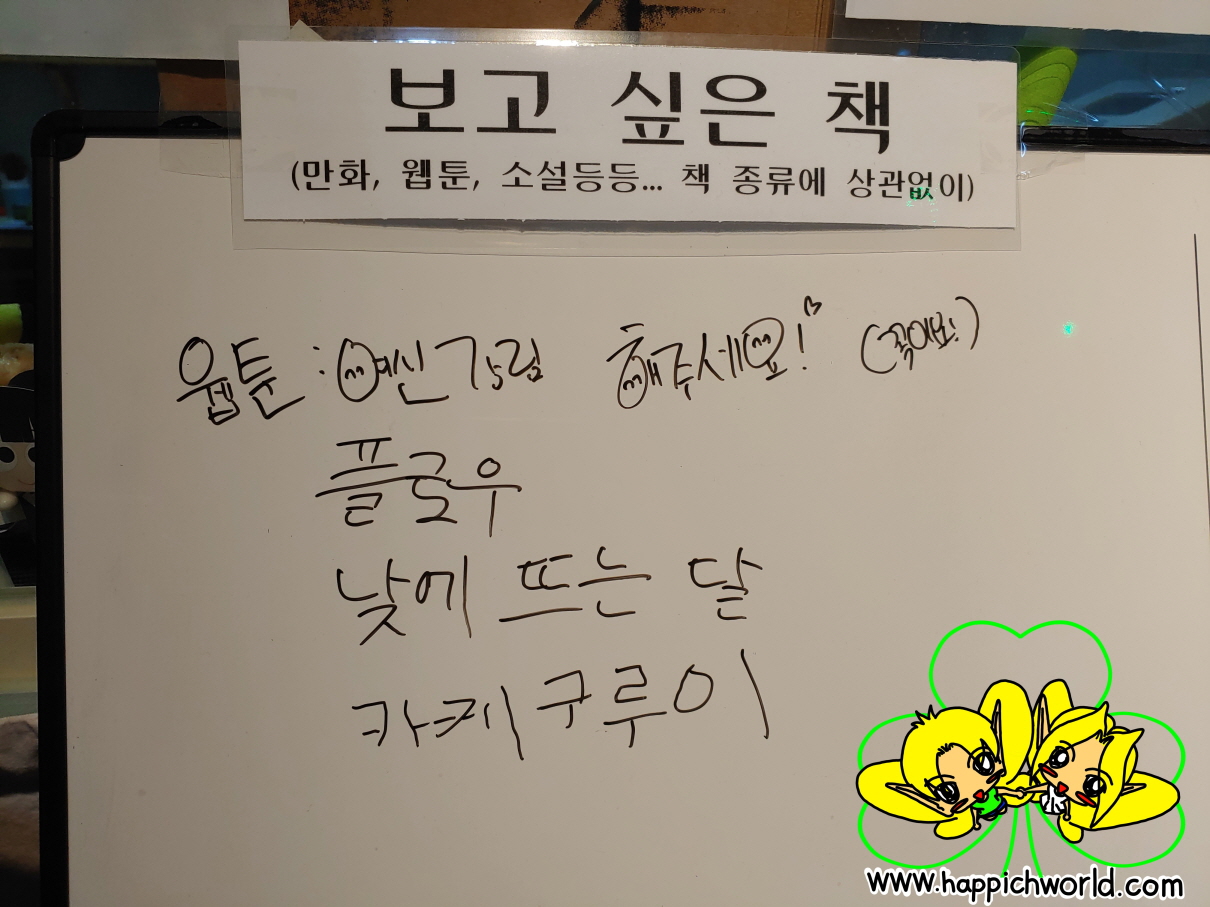 보고 싶은 책
(만화, 웹툰, 소설등등... 책 종류에 상관없이)
웹툰 : 여신강림 해주세요! (꼭이요!)
플로우
낮에 뜨는 달
카케구루이
www.happichworld.com